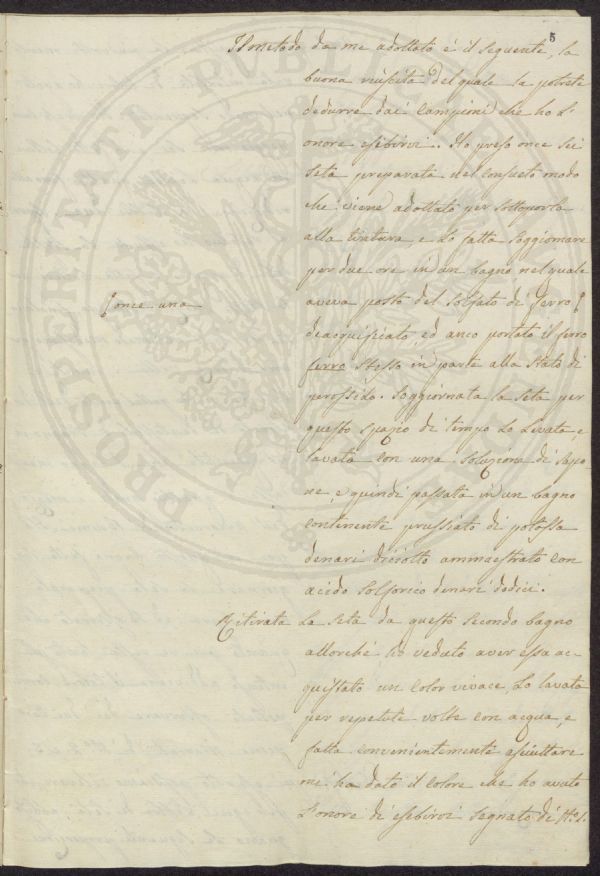 5
Il metodo da me adottato è il seguente, la
buona riuscita del quale la potrete
dedurre dai campioni che ho l'
onore esibirvi. Ho preso once sei
seta preparata nel consueto modo
che viene adottato per sottoporla
alla tintura, e l'ho fatta soggiornare
per due ore in un bagno nel quale
aveva posto del solfato di ferro
once una
deacquificato, ed anco portato il ferro
ferro stesso in parte alla stato di
perossido. Soggiornata la seta per
questo spazio di tempo l'ho levata, e
lavata con una soluzione di sapo=
ne, e quindi passata in un bagno
contenente prussiato di potassa
denari diciotto ammaestrato con
acido solforico denari dodici.
Ritirata la seta da questo secondo bagno
allorché ho veduto aver essa ac=
quistato un color vivace, l'ho lavata
per repetute volte con acqua, e
fatta convenientemente asciuttare
mi ha dato il colore che ho avuto
l'onore di esibirvi segnato di N.º 1.
PROSPERITATI PUBLICAE